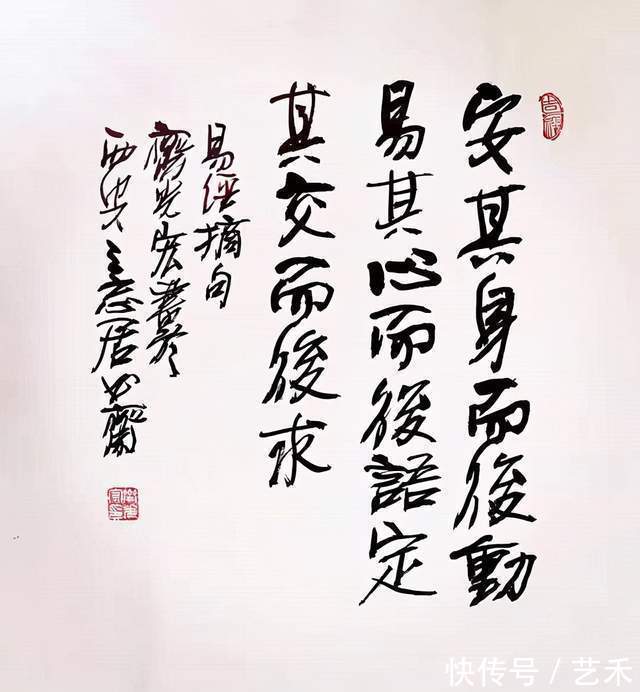 安其身而後動
易其心而後語定
其交而後求
易經摘句
齊光宏書於
西史三志居
快传号／艺禾